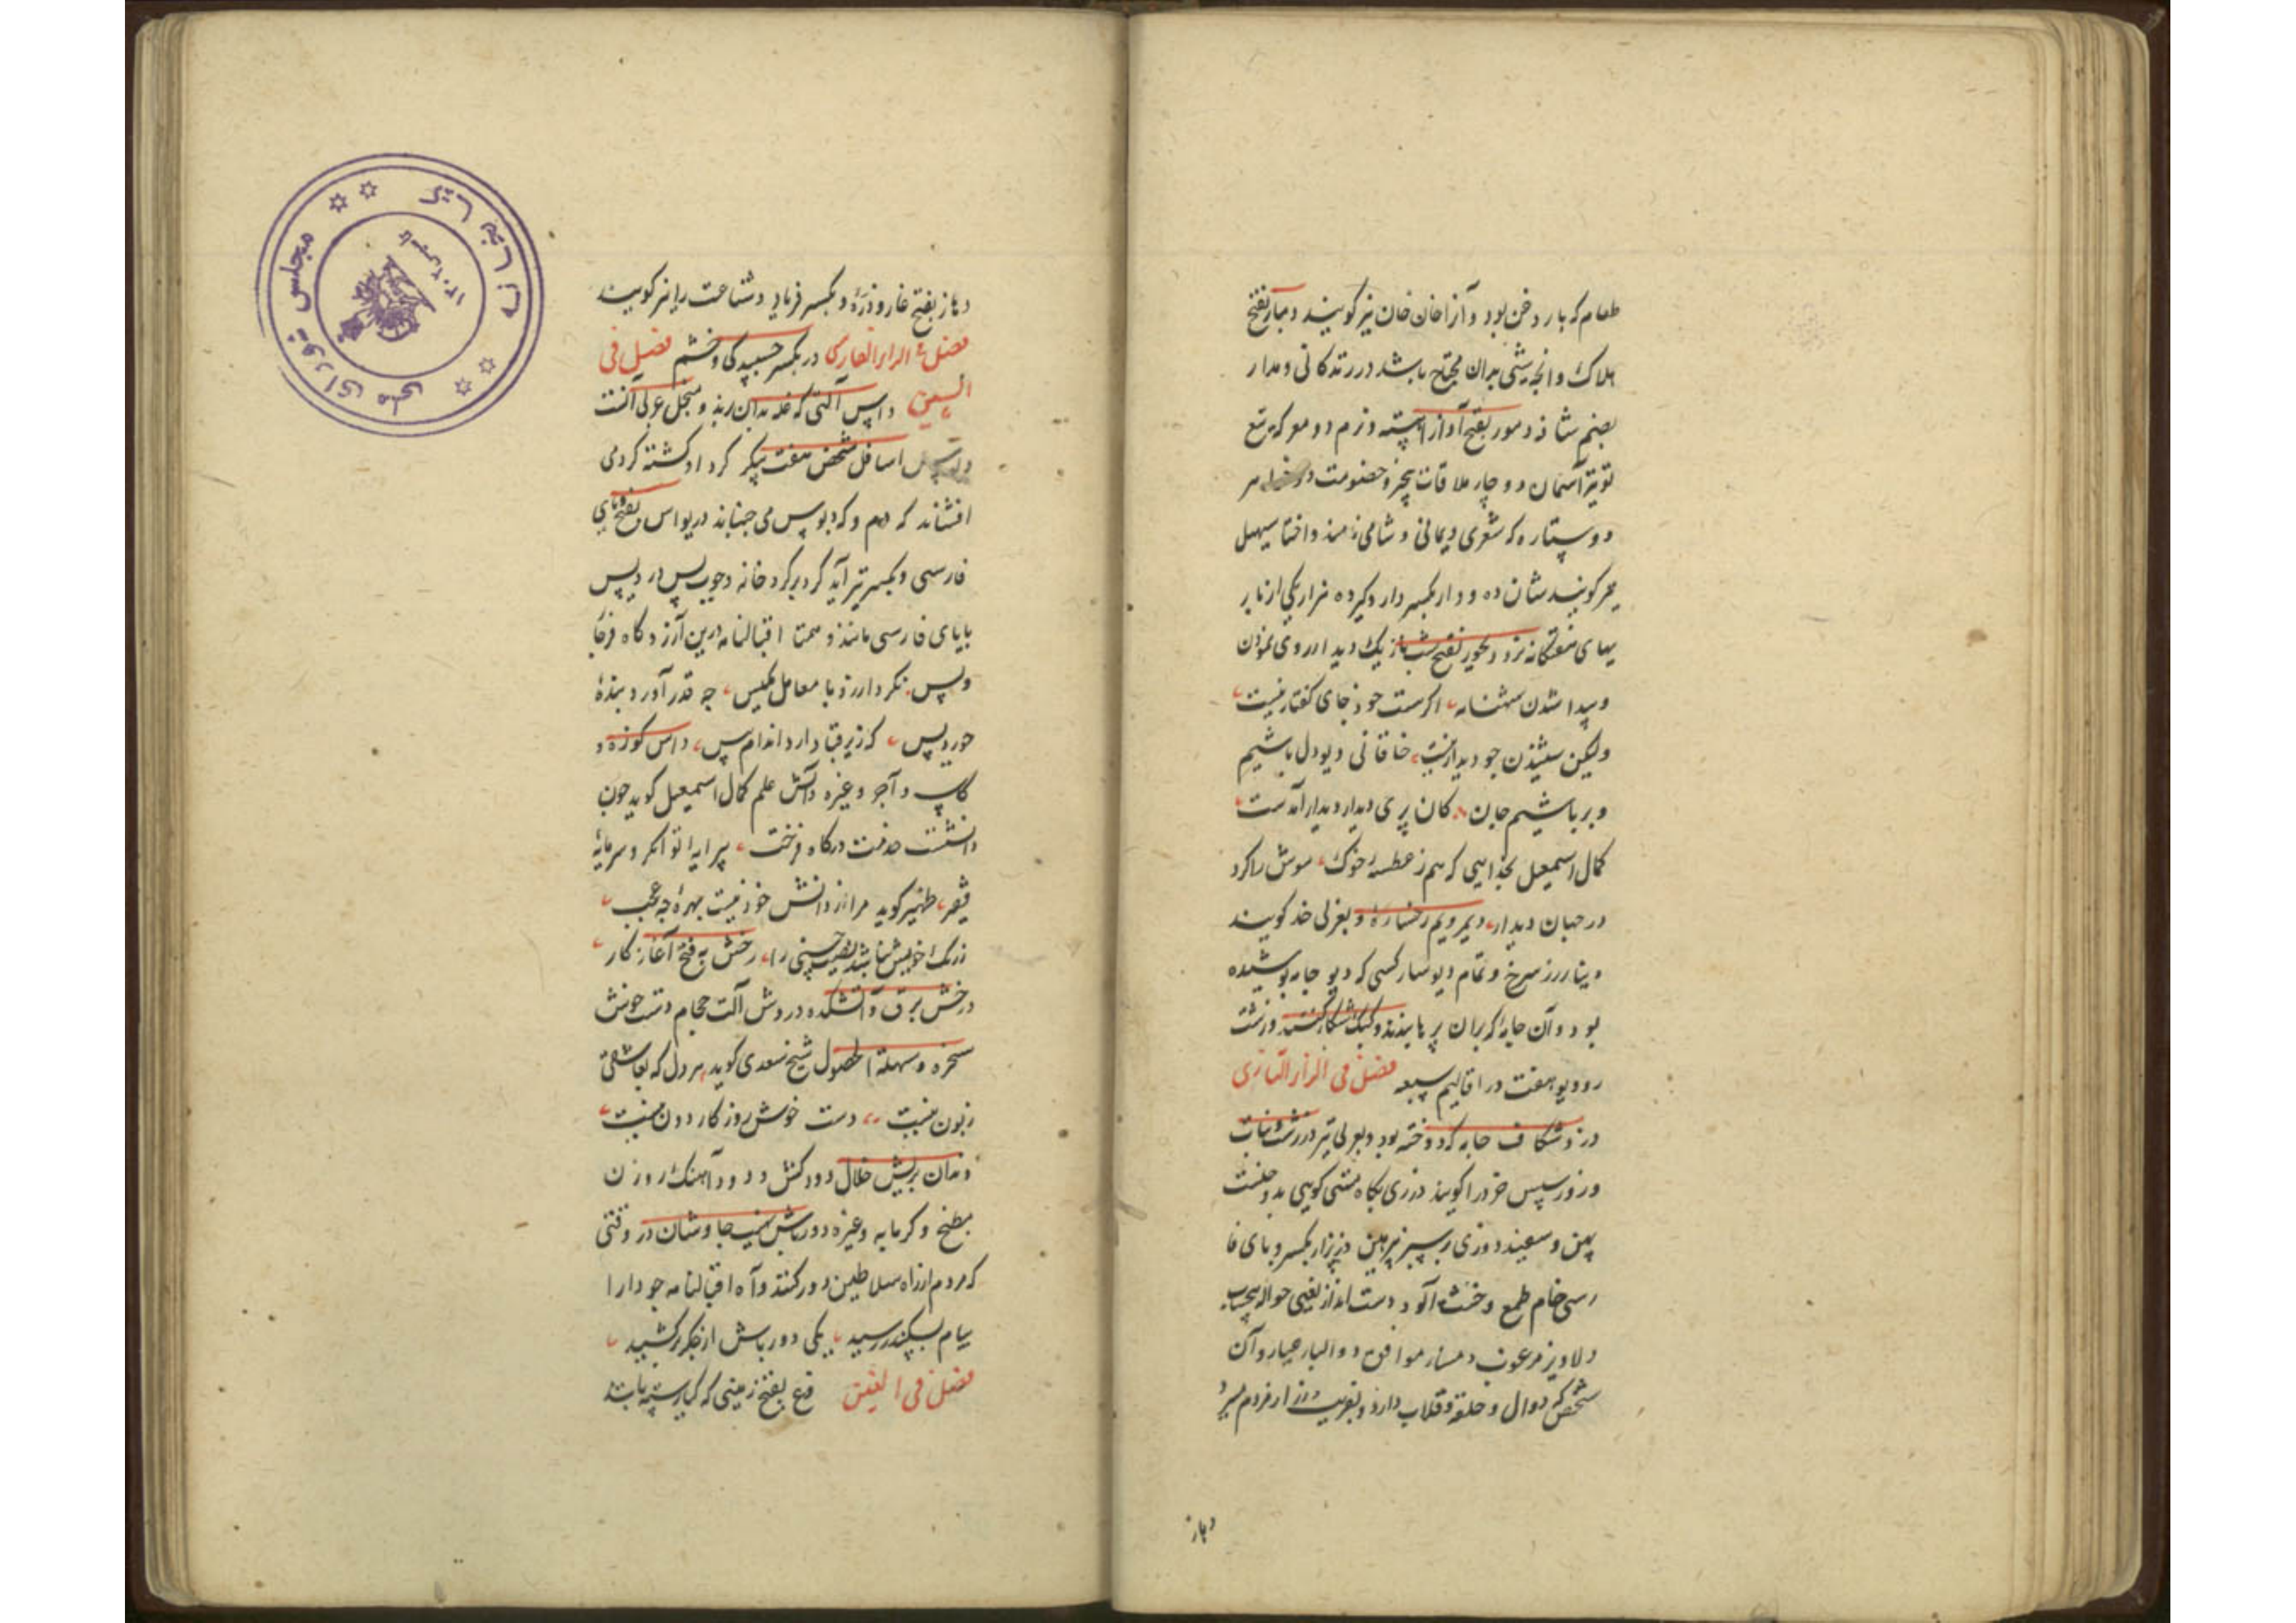 طعام که بار دخن بود و آنرا خان خان نیز کویند دمار بفتح
هلاک و انچه شی بدان محتاج باشد در زندکانی و مدار
بضم شاذ دمور بفتح آواز آهسته و نرم دو مو که یر تیغ
تو یتر آسمان دو چار ملاقات بیخبر و خصومت دو خواهر
دو ستاره که شعری یمانی و شامی نامند و اختا سهیل
نیز کویند شان ده و دار بکسر دار و کیر ده هزار یکی از
یهای هفتکانه نرد دیجور بفتح شب تاریک دیدار روی نمودن
و پیدا شدن شهنامه اکرست خود جای کفتار نیست
ولیکن شنیدن چو دیدار نیست خاقانی دیو دل باشیم
و بر باشیم جان کان پری دیدار دیدار آمدست
کمال اسمعیل بخدایی که هم ز عطسه خوک موش را کرد
در جهان دیدار دیمر و یم رخساره و بعزلی خد کویند
دینار زر سرخ و تمام دیوسار کسی که دیو جامه پوشیده
بود و آن جامه که بدان پر ها بندند و کبک شکار کنند و زشت
رو دیو هفت در اقالیم سبعه فصل فی الزاز التازی
درز شکاف جامه که دوخته بود و بعربی نیز درز است و نبات
و روز سپس خرد را کویند درزی بکاه مشتی کویی بدو جلست
پهن و سعیند دوزی بر سپر نرهین دزبزار بکسر و بای فا
رسی خام طمع و خشم آلود دست انداز یعنی حواله بحساب
دلاویز مرغوب دمساز موافق دوالباز عیار و آن
شخص که دوال و حلقه و قلاب دارد و بفریب زر از مردم ببرد
دهاز
دهاز بفتح غار و دره و بکسر فریاد و شناعت را نیز کویند
فصل ع الزاز الفارسی دژ بکسر چسبیدکی و خشم فصل فی
السین داس آلتی که غله بدان برند و منجل عربی آنست
اسافل شخص هفت پیکر کرد او کشته کردمی
افشاند که دم و که دبوس می جنباند دریواس بفتح و بای
فارسی و بکسر نیز آید کرد برکرد خانه و چوب پس در دیس
بایای فارسی مانند و همتا اقبالنامه درین آرزو کاه فرخا
دیس نکردارزد با معامل مکیس چه قدر آورد بنده
حوردیس که زیر قبا دارد اندام پیس داس کوزه و
کاسه و آجر و غیره دانش علم کمال اسمعیل کوید چون
دانشست خدمت درکاه فرخت پیرایه توانکر و سرمایه
فقیر ظهیر کوید مرا از دانش خود نیست بهره چه عجب
ز رنک خویش نباشد نصیب حسنی را درخش به فتح آغاز کار
درخش برق و آتشکده در وش آلت حجام دست خوش
سخره و سهلة الحصول شیخ سعدی کوید هر دل که بعاشقی
زبون نیست دست خوش روزکار دون نیست
دندان پریش خلال دودکش و دودآهنک روزن
مطبخ و کرمابه و غیره دورباش نهیب چاوشان در وقتی
که مردم از راه سلاطین دور کنند و آه اقبالنامه چو دارا
پیام سکندر رسید یکی دورباش از جکر برکشید
فصل فی الغین دغ بفتح زمینی که کیا رسته باشد
کتابخانه مجلس شورای ملی
تاسیس ۱۳۰۲